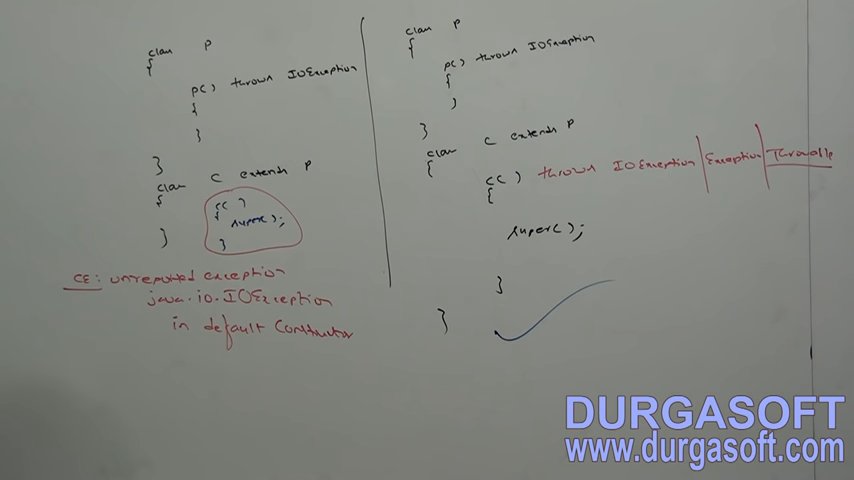 class P
{
P() throws IOException
{
}
}
class C extends P
{
C()
{
super();
}
}
CE: unreported exception
java.io.IOException
in default Constructor
class P
{
P() throws IOException
{
}
}
class C extends P
{
C() throws IOException | Exception | Throwable
{
super();
}
}
DURGASOFT
www.durgasoft.com